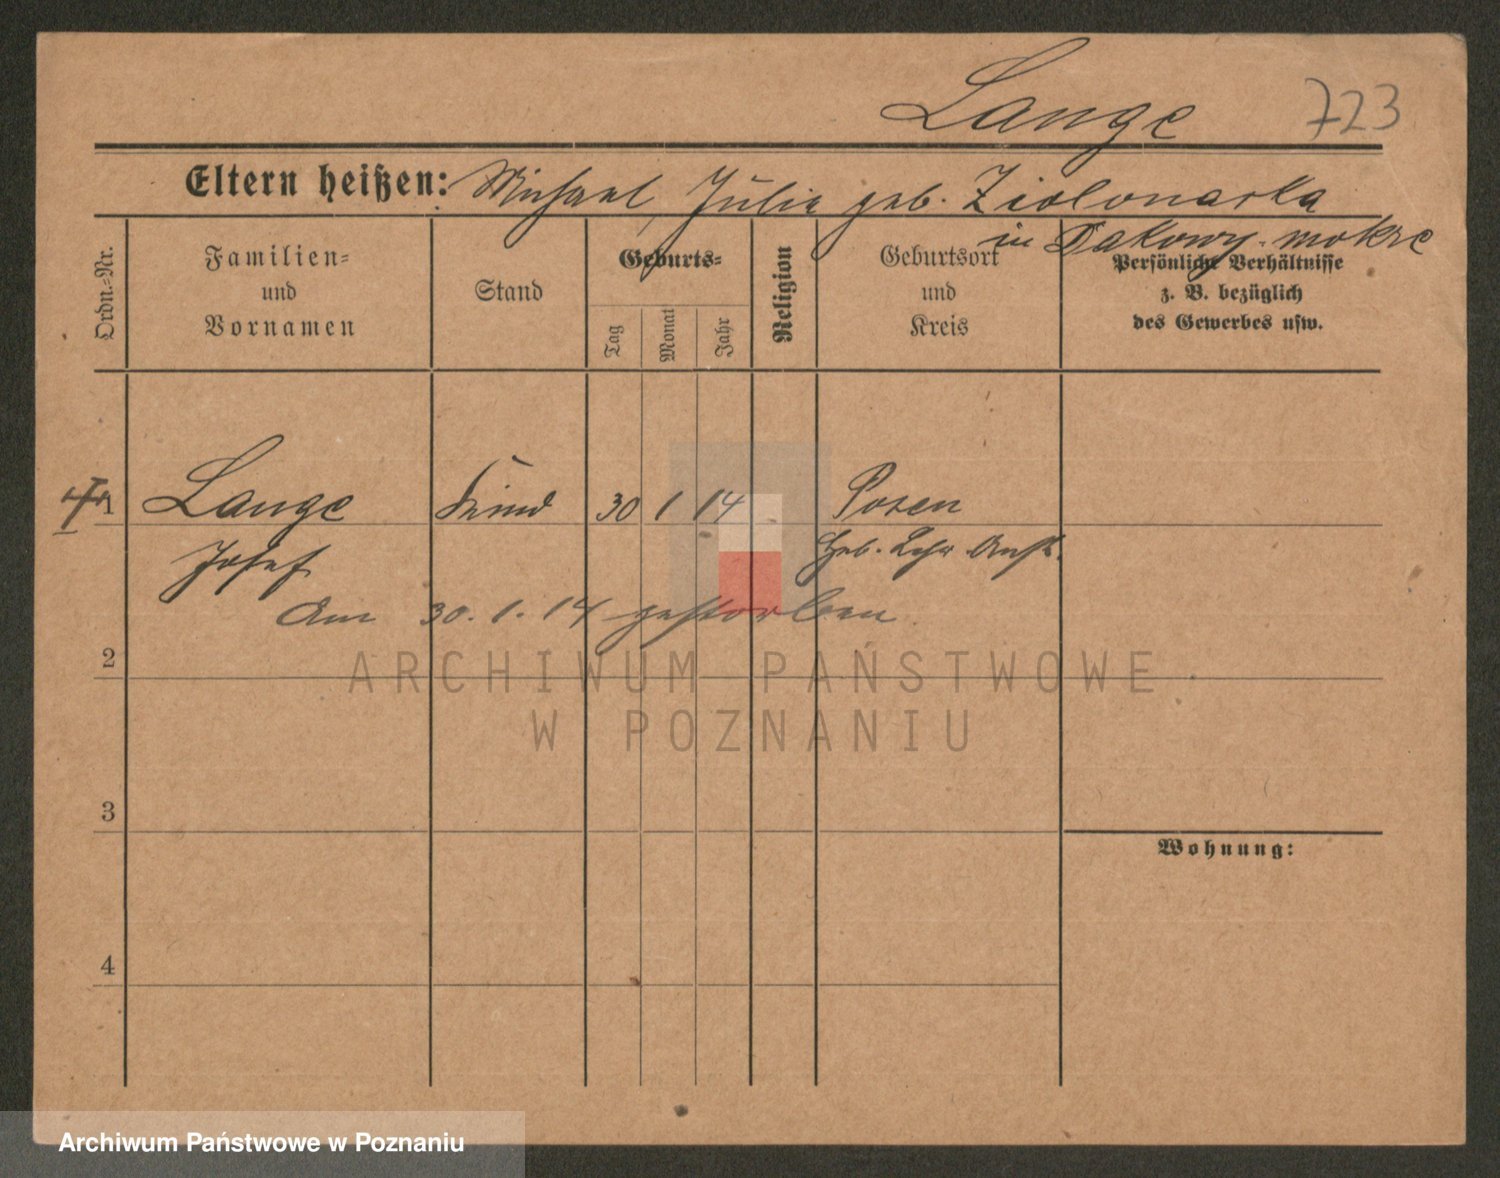 Lange 723
Eltern heißen: Michael Julie geb. Ziolonarka
in Dakowy-mokre
Ordn.-Nr.
Familien-
und
Vornamen
Stand
Geburts-
Tag
Monat
Jahr
Religion
Geburtsort
und
Kreis
Persönliche Verhältnisse
z. B. bezüglich
des Gewerbes usw.
1 Lange Kind 30 1 14 Posen
Josef Heb. Lehr Anst.
Am 30. 1. 14 gestorben
2
3
Wohnung:
4
ARCHIWUM PAŃSTWOWE
W POZNANIU
Archiwum Państwowe w Poznaniu